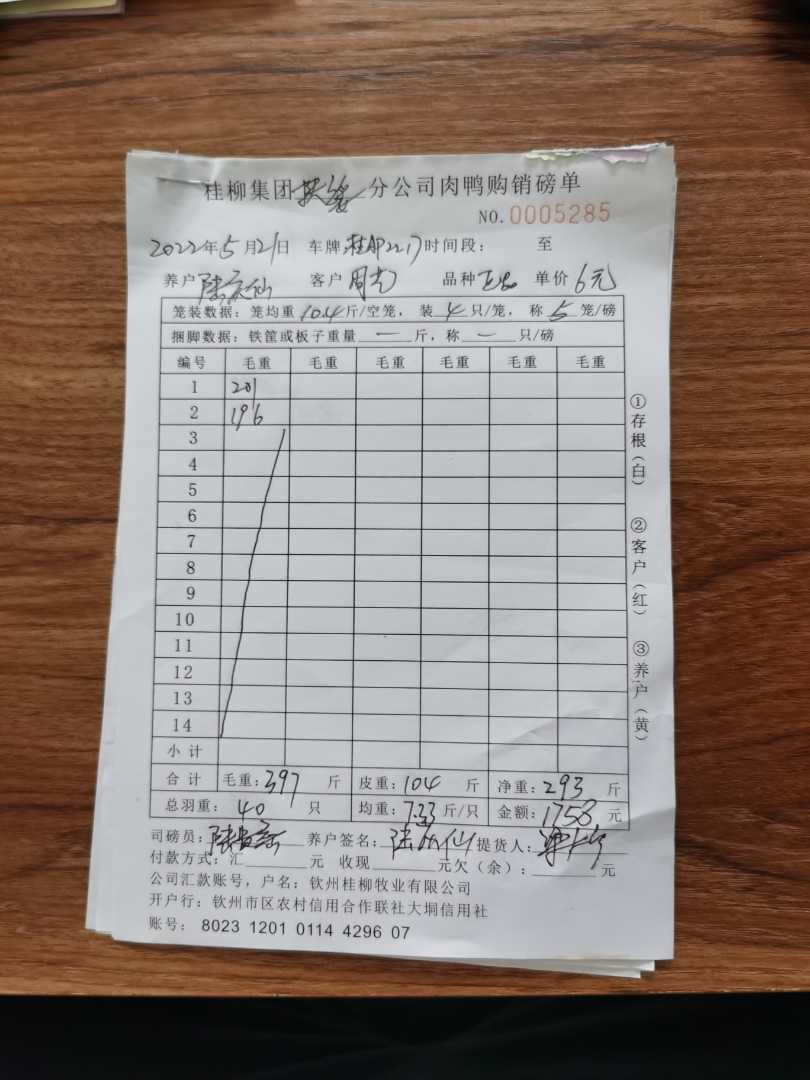 桂柳集团 分公司肉鸭购销磅单
NO.0005285
2022年5月21日 车牌:桂AP2217时间段: 至
养户 陆庆仙 客户 周 品种 单价 6元
笼装数据:笼均重10.4斤/空笼,装4只/笼,称5笼/磅
捆脚数据:铁筐或板子重量—斤,称—只/磅
编号 毛重 毛重 毛重 毛重 毛重 毛重
1 201
2 196
3
4
5
6
7
8
9
10
11
12
13
14
小计
合计 毛重:397 斤 皮重:104 斤 净重:293 斤
总羽重:40 只 均重:7.33斤/只 金额:1758元
司磅员: 养户签名:陆庆仙 提货人:
付款方式:汇 元 收现 元欠(余): 元
公司汇款账号,户名:钦州桂柳牧业有限公司
开户行:钦州市区农村信用合作联社大垌信用社
账号: 8023 1201 0114 4296 07
①存根(白) ②客户(红) ③养户(黄)